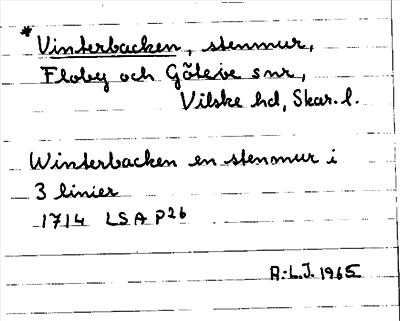 * Vinterbacken, stenmur,
Floby och Göteve snr,
Vilske hd, Skar. l.
Winterbacken en stenmur i
3 linier
1714 LSA P26
A.-L.J. 1965